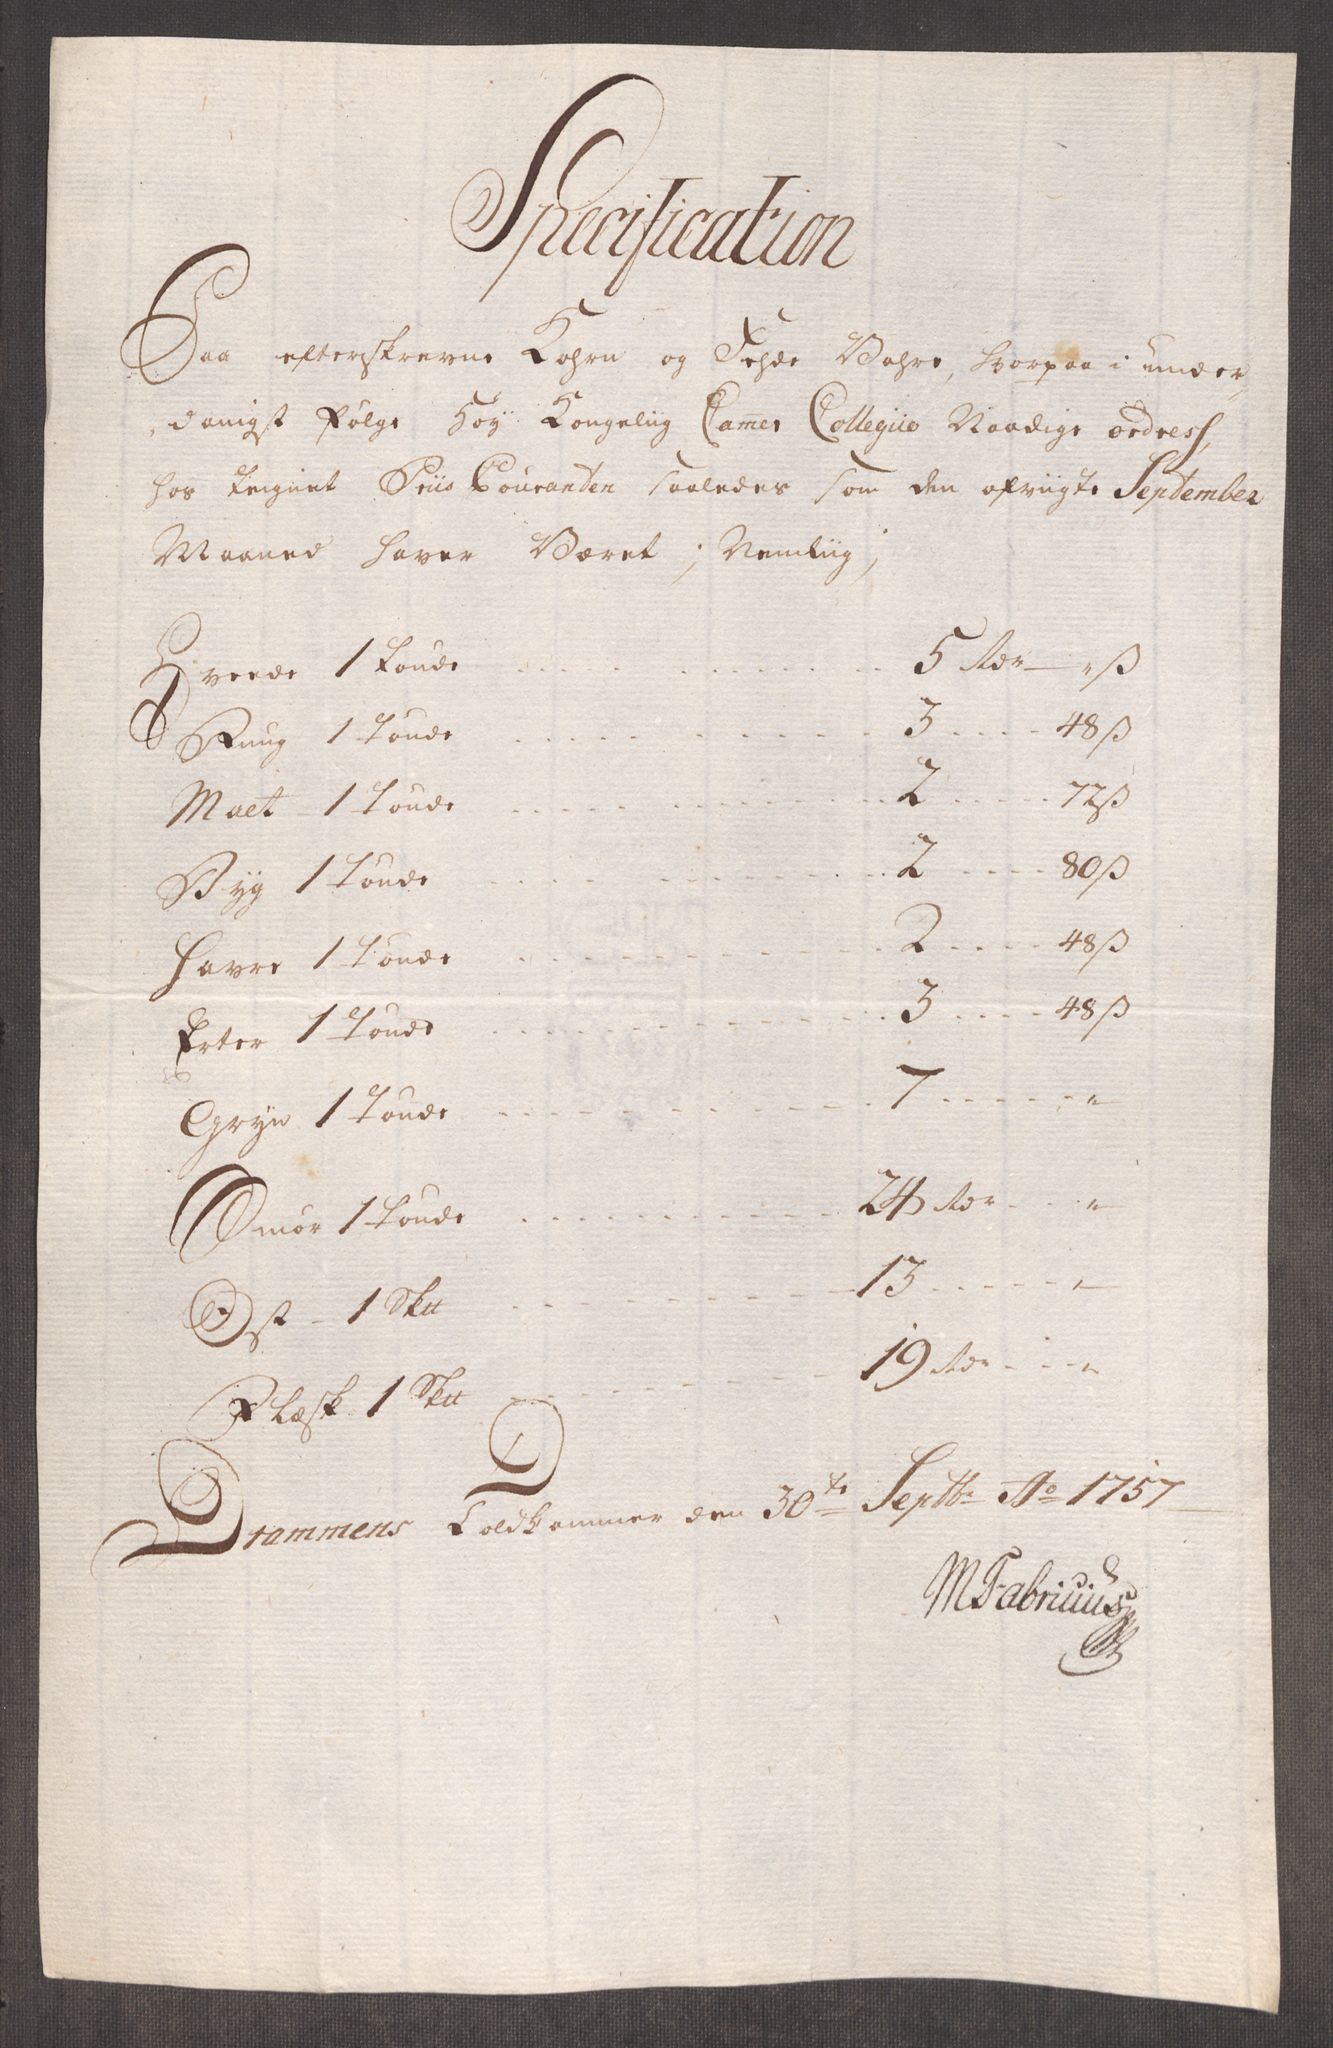 Specification
Paa efterskrevne Kohrn og Fehde Vahre, hvorpaa i under
danigst følge Høy Kongeliig Cam̅er Collegiio Naadige ordress,
hos teignet Priis Couranten saaledes som den afviigte September
Maaned haver Været; Nemliig;
Hveede 1 tønde 5 Rdr „ ß
Rüug 1 Tønde 3 48 ß
Malt 1 Tønde 2 72 ß
Byg 1 Tønde 2 80 ß
Havre 1 Tønde 2 48 ß
Erter 1 Tønde 3 48 ß
Gryn 1 Tønde 7 „
Smør 1 Tønde 24 Rdr „
Ost 1 Sk℔ 13 „
Flæsk 1 Sk℔ 19 Rdr „
Drammens Toldkammer den 30te Septbr Ao 1757
MFabritius